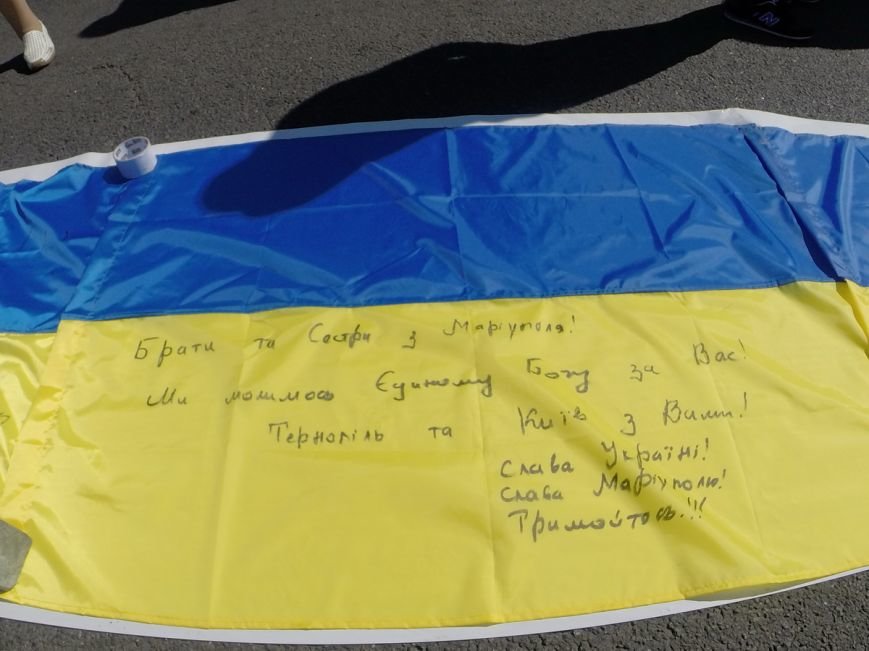 Брати та Сестри з Маріуполя!
Ми молимось Єдиному Богу за Вас!
Тернопіль та Київ з Вами!
Слава Україні!
Слава Маріуполю!
Тримайтось!!!